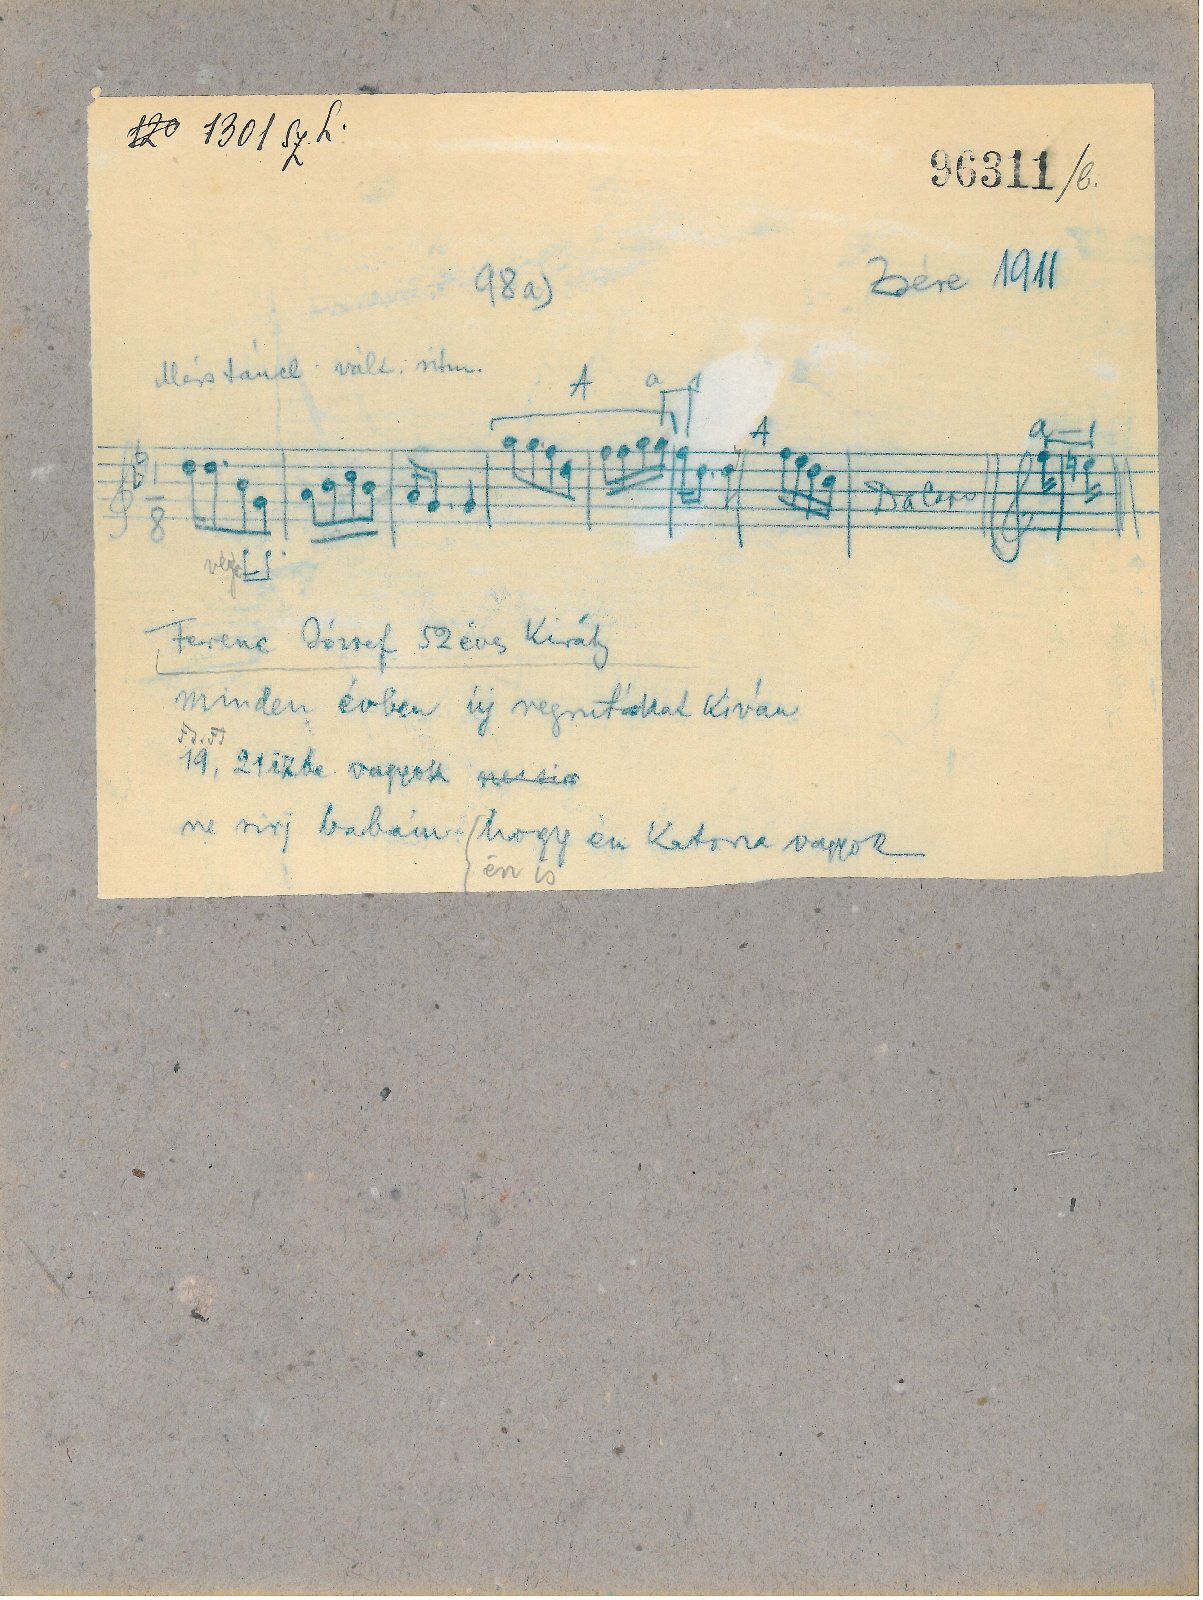 120 1301 sz. h.
96311/b.
98a)
Zsére 1911
vált. ritm.
A a A a
8
Da Capo
vége
Ferenc József 52 éves Király
minden évben új regrutákat Kiván
19, 21 izbe vagyok
ne sirj babám hogy én Katona vagyok
én is